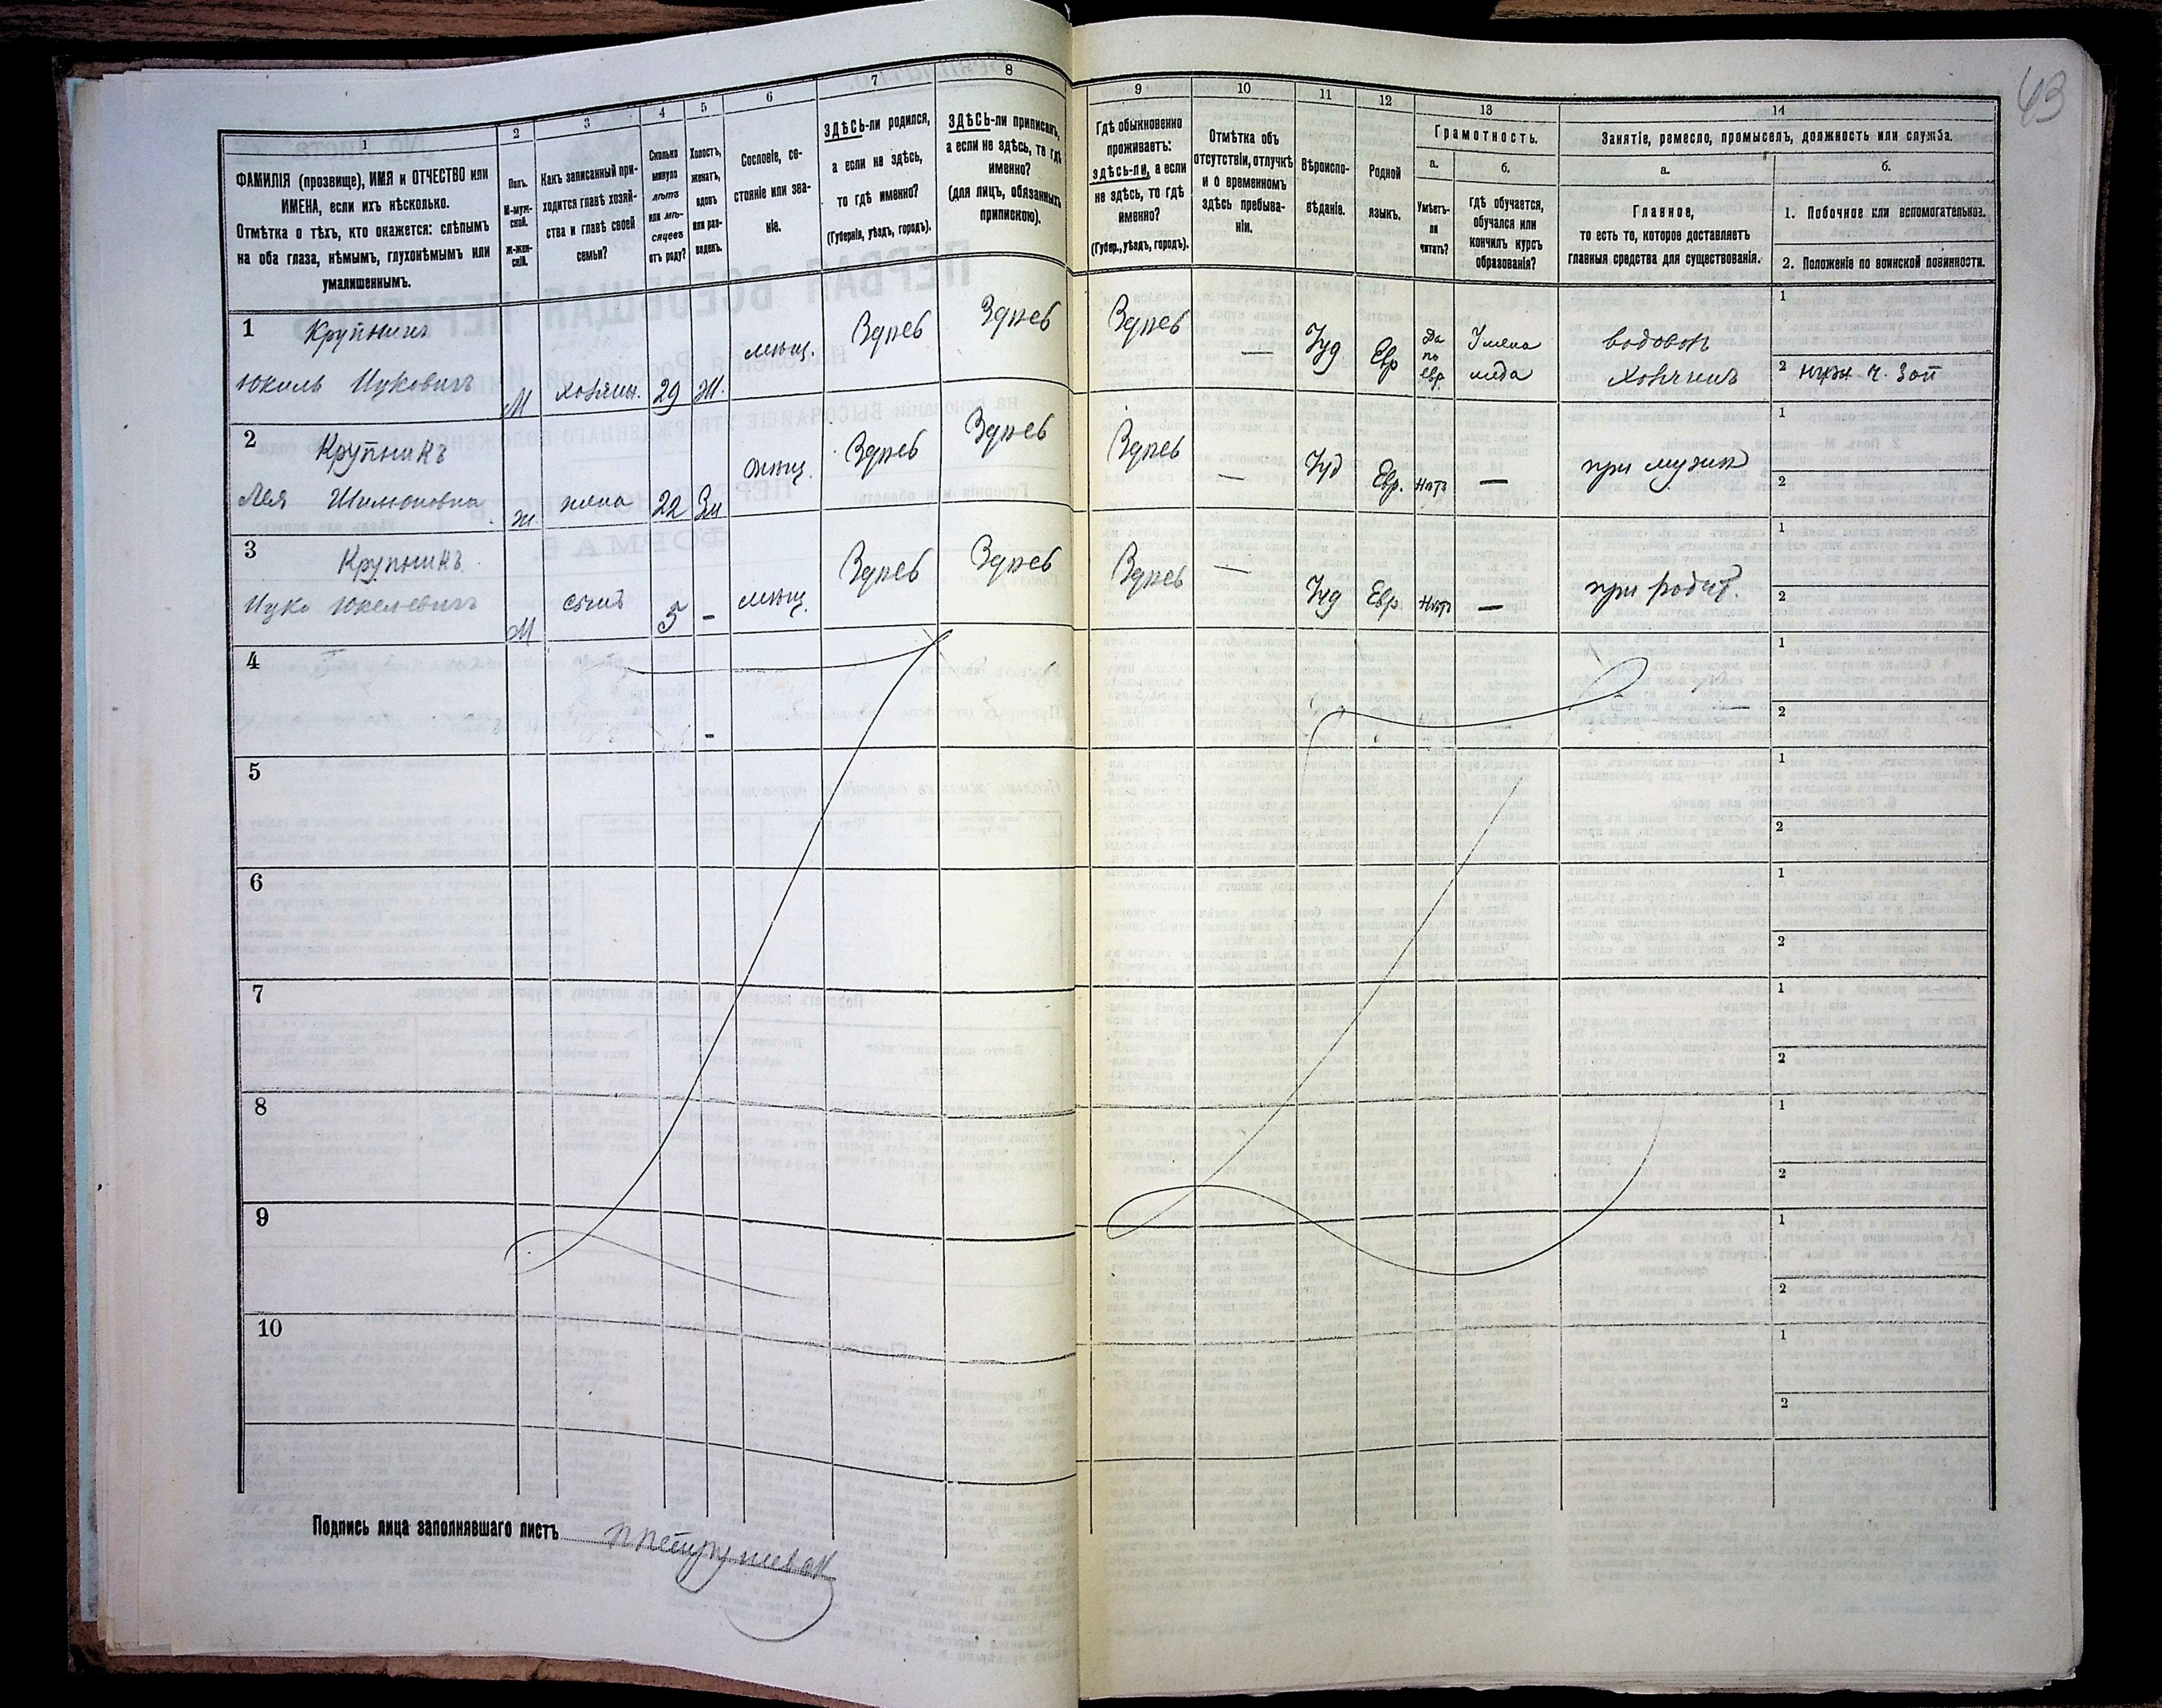 43
1
2
3
4
5
6
7
8
9
10
11
12
13
14
ФАМИЛІЯ (прозвище), ИМЯ и ОТЧЕСТВО или
ИМЕНА, если ихъ нѣсколько.
Отмѣтка о тѣхъ, кто окажется: слѣпымъ
на оба глаза, нѣмымъ, глухонѣмымъ или
умалишеннымъ.
Полъ.
М-муж-
ской.
Ж-жен-
скій.
Какъ записанный при-
ходится главѣ хозяй-
ства и главѣ своей
семьи?
Сколько
минуло
лѣтъ
или мѣ-
сяцевъ
отъ роду?
Холостъ,
женатъ,
вдовъ
или раз-
веденъ.
Сословіе, со-
стояніе или зва-
ніе.
ЗДѢСЬ-ли родился,
а если не здѣсь,
то гдѣ именно?
(Губернія, уѣздъ, городъ).
ЗДѢСЬ-ли приписанъ,
а если не здѣсь, то гдѣ
именно?
(для лицъ, обязанныхъ
припискою).
Гдѣ обыкновенно
проживаетъ:
здѣсь-ли, а если
не здѣсь, то гдѣ
именно?
(Губер., уѣздъ, городъ).
Отмѣтка объ
отсутствіи, отлучкѣ
и о временномъ
здѣсь пребыва-
ніи.
Вѣроиспо-
вѣданіе.
Родной
языкъ.
Грамотность.
а.
Умѣетъ-
ли
читать?
б.
Гдѣ обучается,
обучался или
кончилъ курсъ
образованія?
Занятіе, ремесло, промыселъ, должность или служба.
а.
Главное,
то есть то, которое доставляетъ
главныя средства для существованія.
б.
1. Побочное или вспомогательное.
2. Положеніе по воинской повинности.
1 Крупникъ
Юкель Ицковичъ М хозяин. 29 Ж. мѣщ. Здѣсь Здѣсь Здѣсь — Іуд Евр Да по евр. водовоз хозяинъ
1
2
2 Крупникъ
Лея Шимоновна ж жена 22 Зм мѣщ. Здѣсь Здѣсь Здѣсь — Іуд Евр. Нѣтъ — при мужѣ
1
2
3 Крупникъ
Ицко Юкелевичъ М сынъ 5 — мѣщ. Здѣсь Здѣсь Здѣсь — Іуд Евр Нѣтъ — при родит.
1
2
4
1
2
5
1
2
6
1
2
7
1
2
8
1
2
9
1
2
10
1
2
Подпись лица заполнявшаго листъ